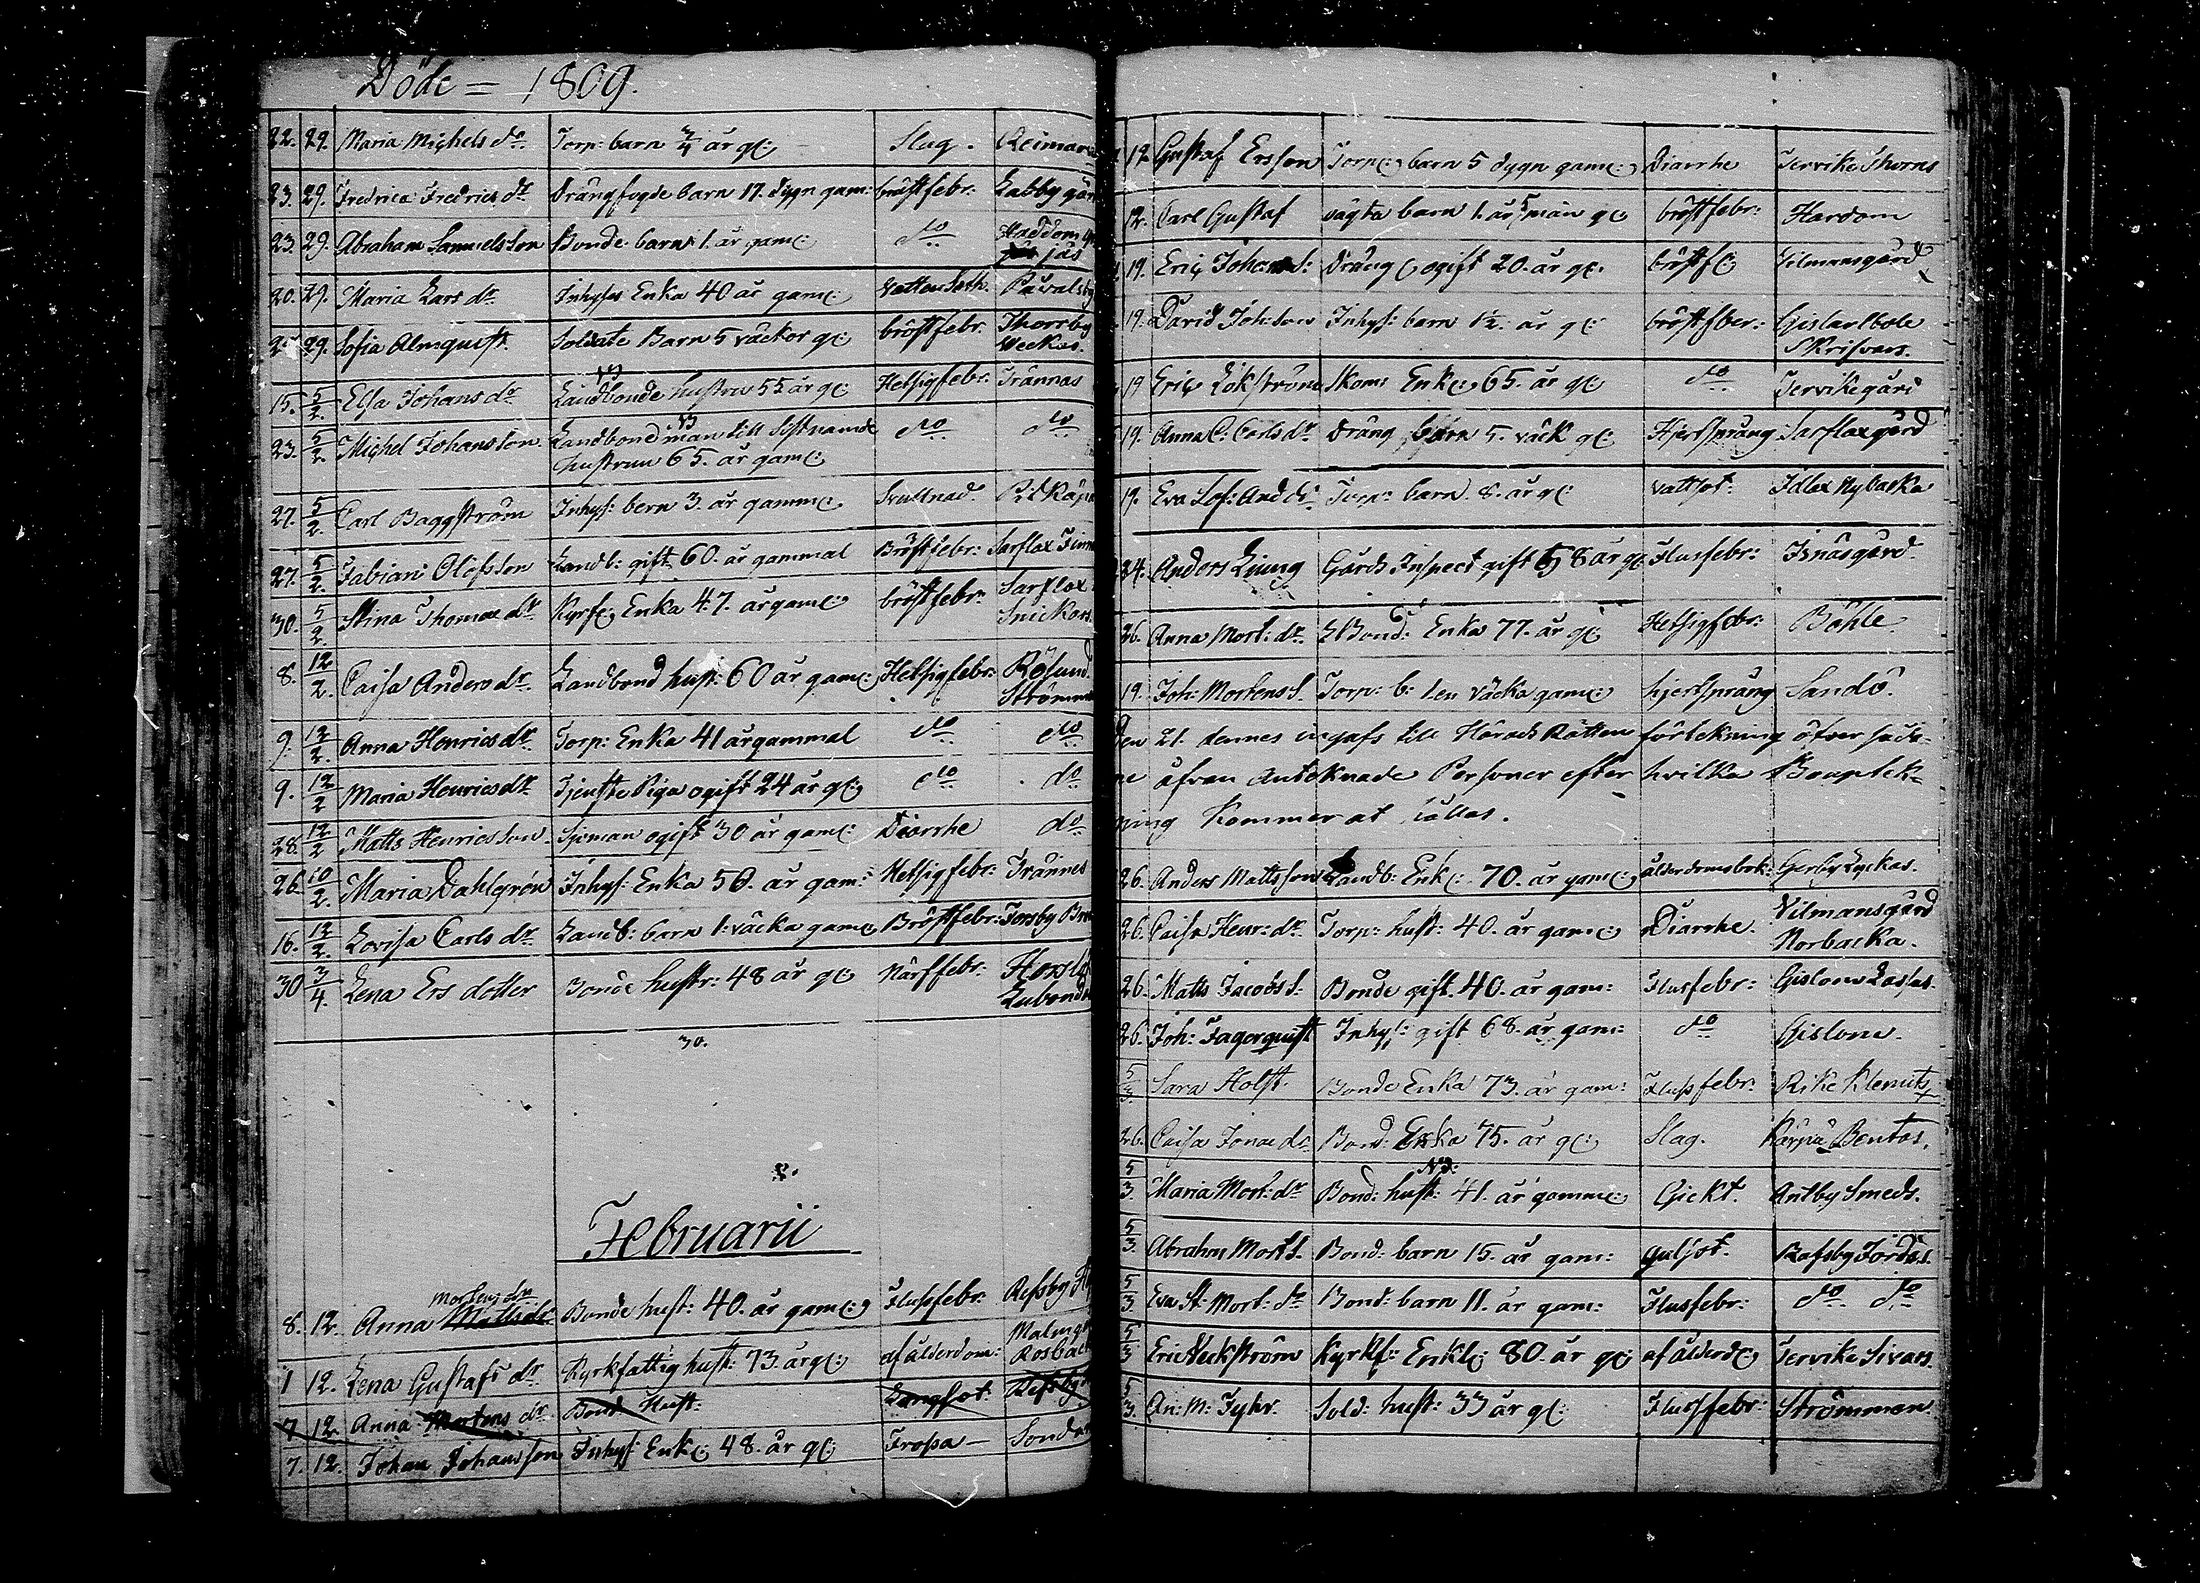 Döde = 1809.
22. 29. Maria Michels dr. Torp: barn 3/4 år g(: Slag. Reimars
23. 29. Fredrica Fredrics dr. Drängfogde barn 17. dygn gam: bröstfebr: Labby gård
23. 29. Abraham Samuelsson Bonde barn 1. år gam(: do Haddom
jäs
20. 29. Maria Lars dr. Inhyses Enka 40 år gam(: Vattusoth. Påvalsby
25. 29. Sofia Almquist. Soldate Barn 5 väckor g(: bröstfebr: Thorrby
Weckas.
15. 5/2. Elsa Johans dr Landbonde hustru 55 år g(: Hetsigfebr: Trännas
23. 5/2. Michel Johansson Landbond man till sistnamde do do
hustrun 65. år gam(:
27. 5/2. Carl Baggström Inhys: barn 3. år gamm(: Svullnad.
27. 5/2. Fabian Olofsson Landb: gift 60. år gammal Bröstfebr: Sarflax
30. 5/2 Stina Thomæ dr. Kyrf(: Enka 47. år gam(: bröstfebr: Sarflax
Snickars
8. 12/2. Caisa Anders dr. Landbond hust: 60 år gam(: Hetsigfebr: Rösund
Strömman
9. 12/2. Anna Henrics dr. Torp: Enka 41 år gammal do do
9. 12/2 Maria Henrics dr. Tjenste Piga ogift 24 år g(: do do
28. 12/2 Matts Henricsson Sjöman ogift 30 år gam(: Diarrhe do
26. 10/2. Maria Dahlgrén Inhys: Enka 50. år gam: Hetsigfebr: Trännes
16. 12/2. Lovisa Carls dr. Landb: barn 1. väcka gam(: Bröstfebr: Torsby
30 3/4. Lena Ers dotter Bonde hustr: 48 år g(: Närffebr:
30.
Februarii
Mortens dr
8. 12. Anna Matts dr Bonde hust: 40. år gam(: Flussfebr: Refsby
1 12. Lena Gustafs dr. Kyrkfattig hust: 73. år g(: af ålderdom: Malmg
Rosbac
7 12. Anna Mortens dr. Bond: Hust: Lungsot. Refsby
7. 12. Johan Johansson Inhys: Enk(: 48. år g(: Frossa —
19. Gustaf Ersson Torp(: barn 5 dygn gam(: Diarrhe Tervike Thorns
12. Carl Gustaf oägta barn 1. år 5 mån g(: bröstfebr: Hardom
19. Eric Johans S: Dräng(: ogift 20. år g(: bröstf(: Vilmansgård
19. David Joh:son Inhys: barn 1½. år g(: bröstfber: Gislarlböle
Skrifvars.
19 Eric Lökström Skom: Enk(: 65. år g(: do Tervikgård
19. Anna C: Carls dr. Dräng barn 5. väck g(: Hjertsprång Sarflaxgård
19. Eva Sof: And dr. Torp: barn 8. år g(: vattsot: Idlax Nybacka
24. Anders Liung Gårds Inspect gift 58 år g(: Flussfebr: Isnäsgård.
26. Anna Mort: dr. Bond: Enka 77. år g(: Hetsigfebr: Böhle.
19. Joh: Mortens S. Torp: b: 1 en väcka gam(: hjertsprång Sandö.
Den 21. dennes ingafs till Härads Rätten förtekning öfver sada-
ne åfvan anteknade Personer efter hvilka Boupptek-
ning kommer at hållas.
26. Anders Mattsson Landb: Enk(: 70. år gam(: ålderdomsbrek: Gerby Lyckas.
26. Caisa Henr: dr. Torp: hust: 40. år gam(: Diarrhe. Vilmansgård
Norbacka.
26. Matts Jacobs S. Bonde gift. 40. år gam: Flusfebr: Gislom Lasses.
26. Joh: Fagerquist Inhys: gift 68. år gam: do Gislom.
5/3. Sara Holst. Bonde Enka 73. år gam: Flussfebr: Rike Klemits
26. Caisa Jonæ dr Bond: Enka 75. år g(: Slag. Kärpä Bentas.
5/3. Maria Mort: dr Bond: hust: 41. år gamm(: Gickt. Antby Smeds.
5/3. Abrahm Mort S. Bond: barn 15. år gam: gulsot. Rafsby Jordas.
5/3. Eva St: Mort: dr Bond: barn 11. år gam: Flusfebr: do do
5/3 Eric Veckström Kyrkf: Enkl(: 80. år g(: af ålderd(: Tervike Sivars.
5/3. An: M: Fyhr. Sold: hust: 33 år g(: Flussfebr: Strömman